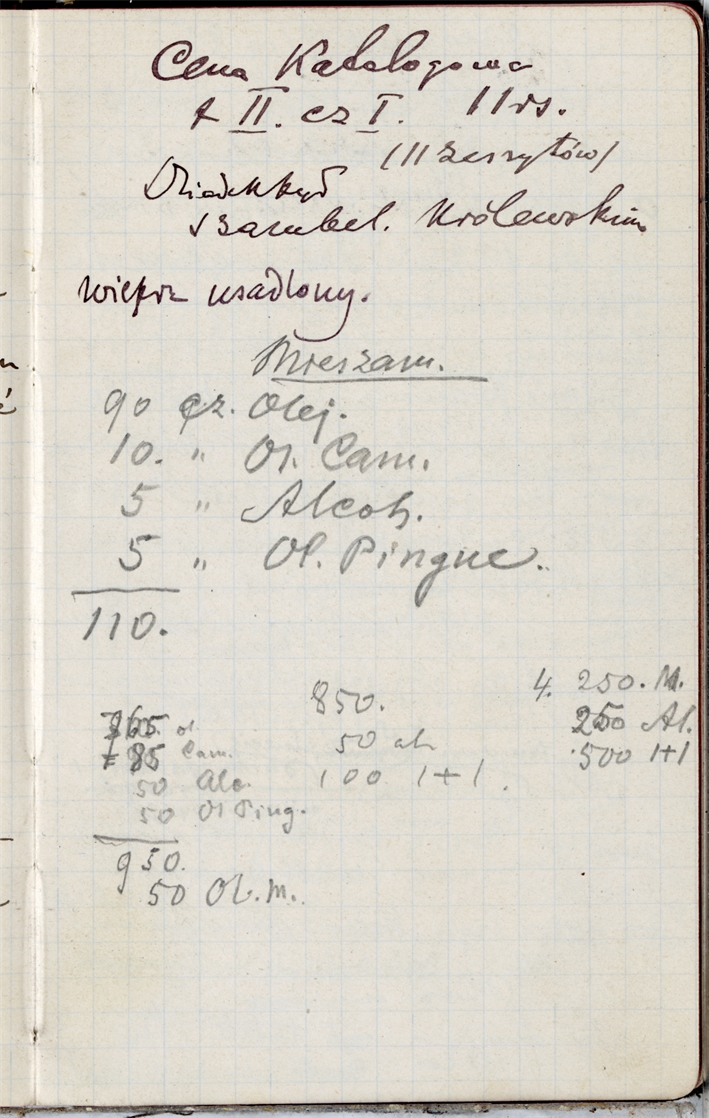 Cena Katalogowa
t II. cz I. 11 rs.
(11 zeszytów)
Dziadek był
szambel. Królewskim
wieprz usadlony.
Mieszam.
90 cz. Olej.
10. " Ol. Cam.
5 " Alcoh.
5 " Ol. Pingue.
110.
765 ol.
85 Cam.
50 Alc.
50 Ol Ping.
950.
50 Ol. M.
850.
50 ah
100 1+1.
4. 250. M.
250 Al.
500 1+1